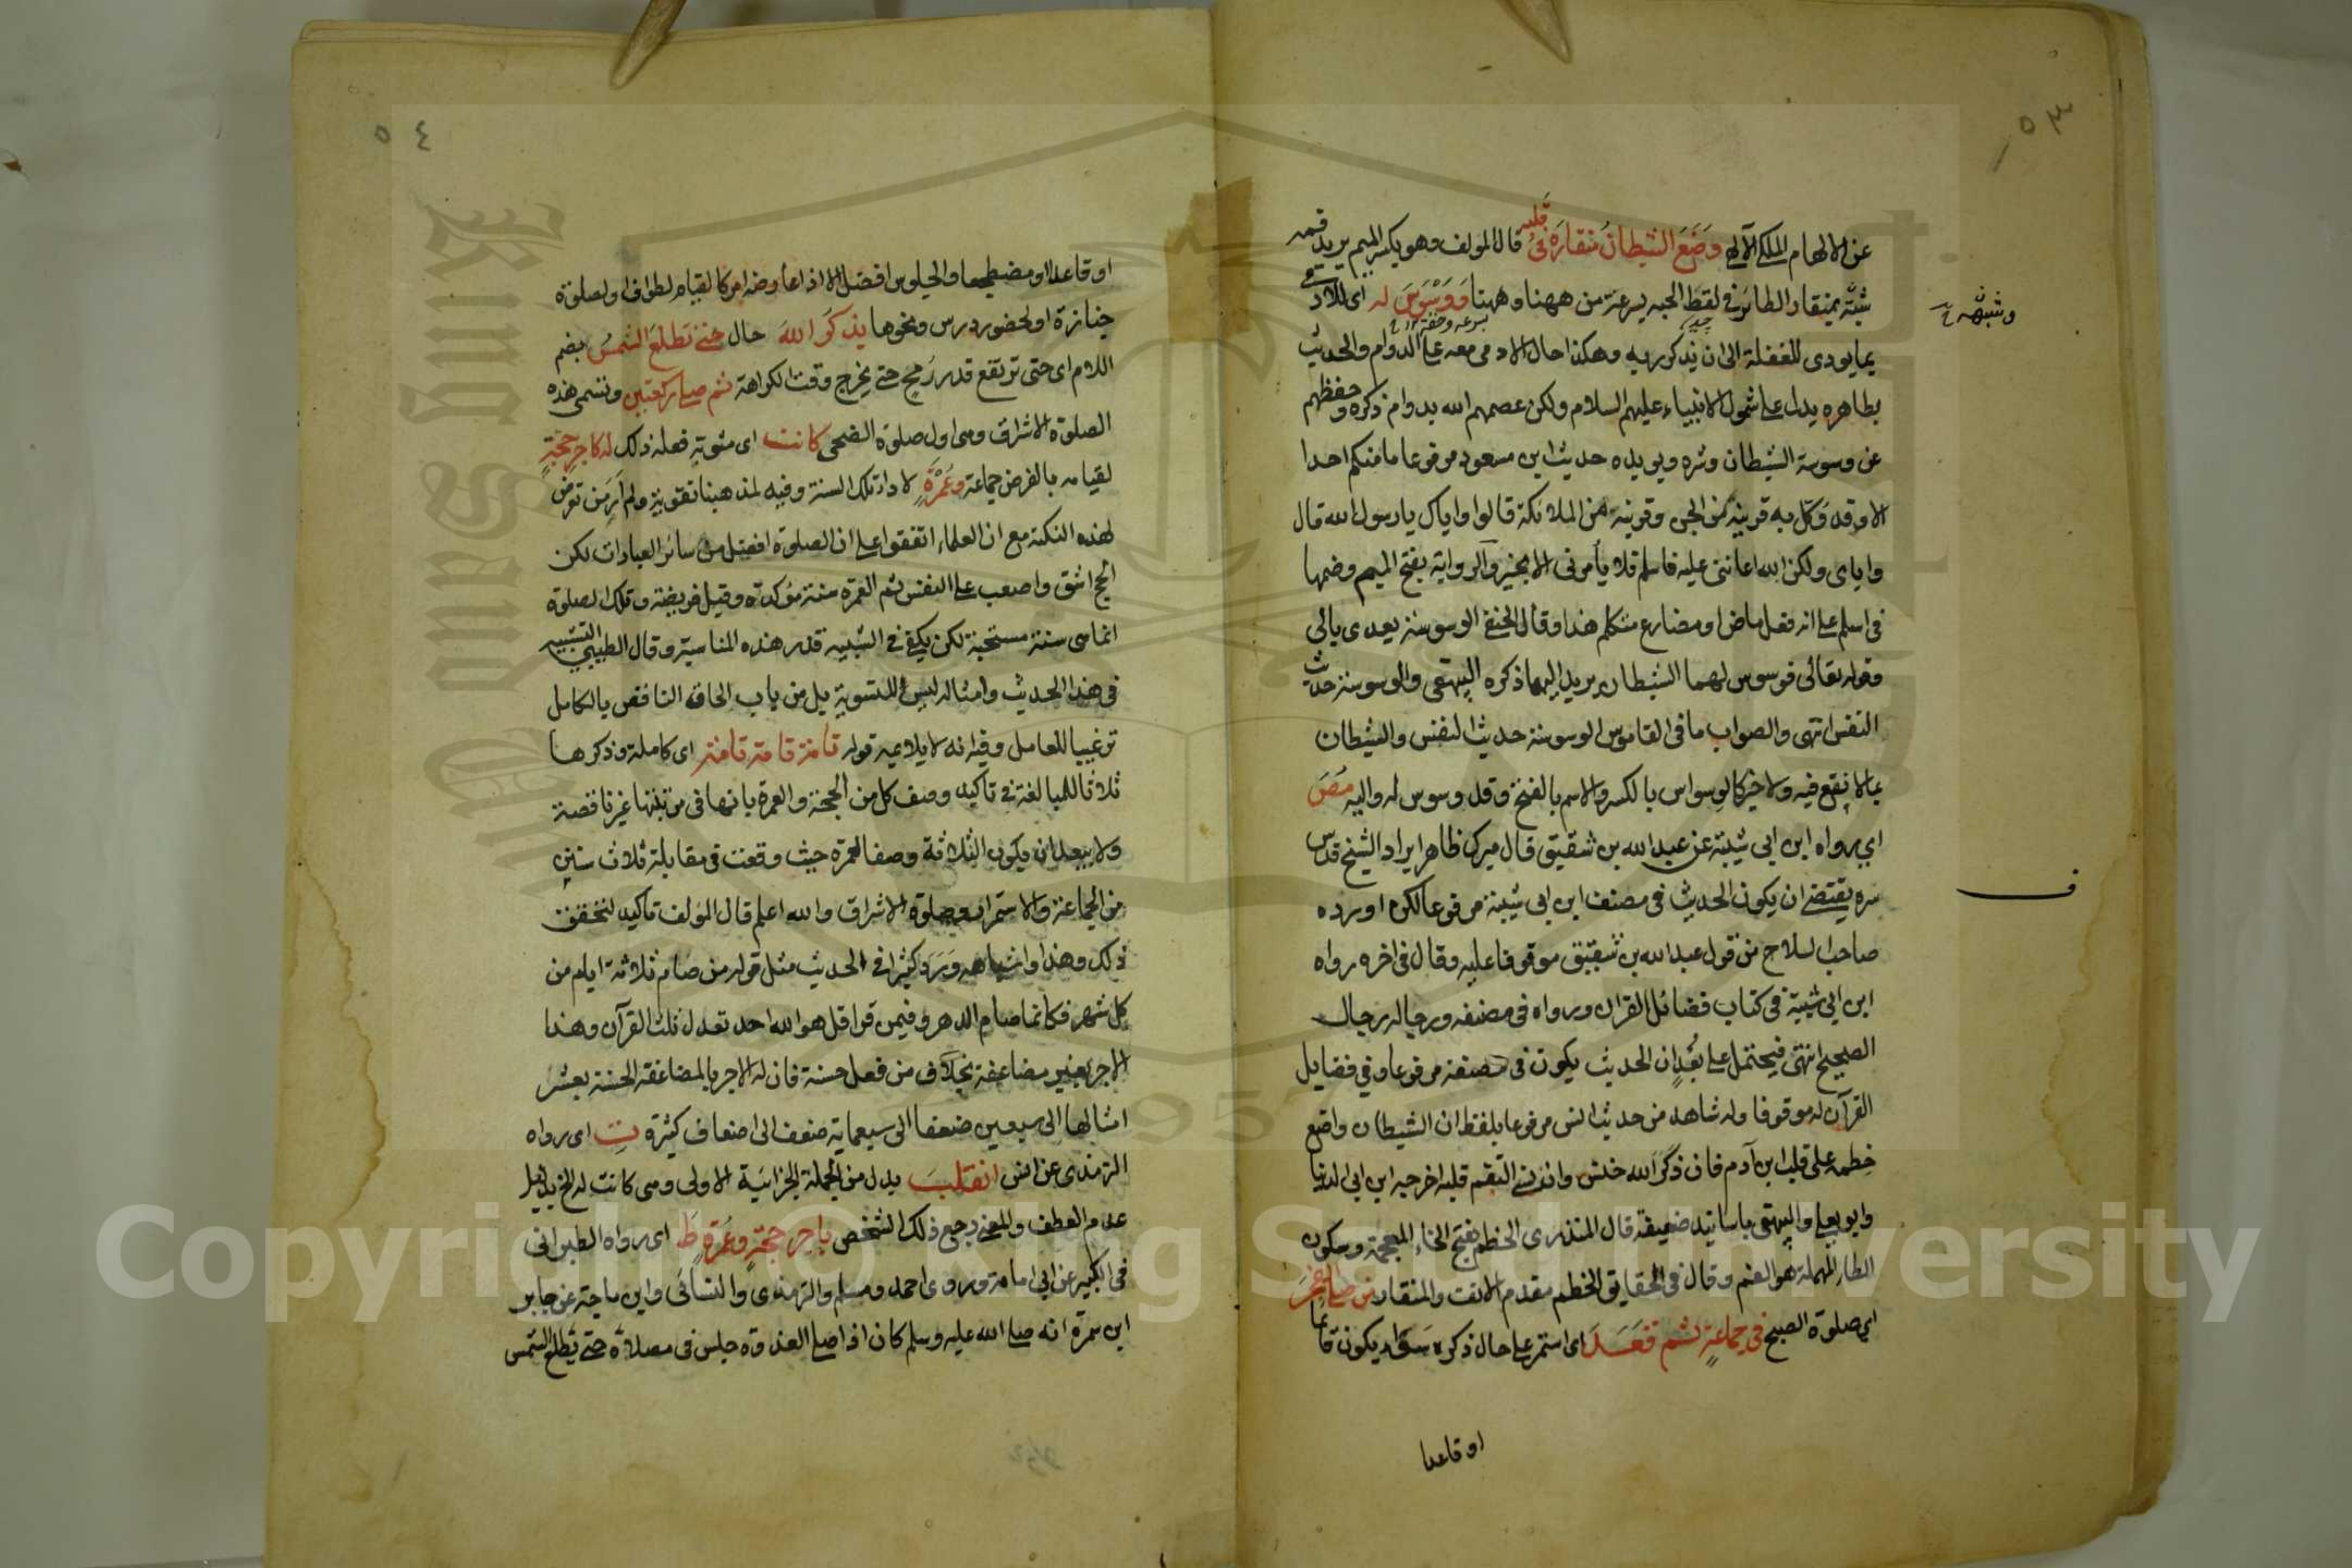 ٥٣
عن الالهام الملكي الآلهي وَضَعَ الشيطانُ منقارَه في قلبِه قال المولف وهو بكسر الميم يريد فمه
شبّه بمنقار الطائر في لقط الحبه بسرعة من ههنا وههنا وَوَسْوَسَ له اي للآدمي
وشبهه
بسرعه وخفة
بما يودي للغفلة الى ان يذكر ربه وهكذا حال الادمي معه على الدوام والحديث
بظاهره يدل على شمول الانبياء عليهم السلام ولكن عصمهم الله بدوام ذكره وحفظهم
عن وسوسة الشيطان وشره ويويده حديث ابن مسعود مرفوعا ما منكم احدا
الا وقد وَكّل به قرينه من الجن وقرينه من الملائكة قالوا واياك يا رسول الله قال
واياي ولكن الله اعانني عليه فاسلم فلا يأمرني الا بخير والرواية بفتح الميم وضمها
في اسلم على انه فعل ماض او مضارع متكلم هذا وقال الحنفي الوسوسة يعدى بالى
وقوله تعالى فوسوس لهما الشيطان يريد اليهما ذكره البيهقي والوسوسة حديث
النفس انتهى والصواب ما في القاموس الوسوسة حديث النفس والشيطان
بما لا نفع فيه ولا خير كالوسواس بالكسر والاسم بالفتح وقد وسوس له واليه مص
اي رواه ابن ابي شيبة عن عبد الله بن شقيق قال ميرك ظاهر ايراد الشيخ قدس
ف
سره يقتضي ان يكون الحديث في مصنف ابن ابي شيبة مرفوعا لكن اورده
صاحب السلاح من قول عبد الله بن شقيق موقوفا عليه وقال في اخره رواه
ابن ابي شيبة في كتاب فضائل القران ورواه في مصنفه ورجاله رجال
الصحيح انتهى فيحتمل على بُعْدٍ ان الحديث يكون في مصنفه مرفوعا وفي فضايل
القرآن له موقوفا وله شاهد من حديث انس مرفوعا بلفظ ان الشيطان واضع
خطمه على قلب ابن آدم فان ذكر الله خنس وان نسي التقم قلبه اخرجه ابن ابي الدنيا
وابو يعلى والبيهقي باسانيد ضعيفة قال المنذري الخطم بفتح الخاء المعجمة وسكون
الطاء المهملة هو الفم وقال في الحقايق الخطم مقدم الانف والمنقار من صلى الفجرَ
اي صلوة الصبح في جماعةٍ ثم قَعَدَ اي استمر على حال ذكره سواء يكون قائما
او قاعدا
٥٤
او قاعدا او مضطجعا والجلوس افضل الا اذا عارضه امر كالقيام لطواف او لصلوة
جنازة او لحضور درس ونحوها يذكرُ اللهَ حال حتى تطلعَ الشمسُ بضم
اللام اي حتى ترتفع قدر رُمحٍ حتى يخرج وقت الكراهة ثم صلى ركعتين وتسمى هذه
الصلوة الاشراق وهى اول صلوة الضحى كانت اي مثوبة فعله ذلك له كاجر حجّةٍ
لقيامه بالفرض جماعة وعُمْرَةٍ لاداء تلك السنة وفيه لمذهبنا تقوية ولم أَرَ من تعرض
لهذه النكتة مع ان العلماء اتفقوا على ان الصلوة افضل من سائر العبادات لكن
الحج اشق واصعب على النفس ثم العمرة سنة مؤكدة وقيل فريضة وتلك الصلوة
انما هى سنة مستحبة لكن يكفي في التشبيه قدر هذه المناسبة وقال الطيبي التشبيه
في هذا الحديث وامثاله ليس للتسوية بل من باب الحاق الناقص بالكامل
ترغيبا للعامل وفيه انه لا يلايمه قوله تامّة تامة تامّة اي كاملة وذكرها
ثلاثا للمبالغة في تاكيد وصف كل من الحجة والعمرة بانها في مرتبتها غير ناقصة
ولا يبعد ان يكون الثلاثة وصفا لعمرة حيث وقعت في مقابلة ثلاث سنن
من الجماعة والاستمرار وصلوة الاشراق والله اعلم قال المؤلف تاكيد لتحقق
ذلك وهذا واشباهه وَرَدَ كثيرا في الحديث مثل قوله من صام ثلاثة ايام من
كل شهر فكانما صام الدهر وفيمن قرا قل هو الله احد تعدل ثلث القرآن وهذا
الاجر بغير مضاعفة بخلاف من فعل حسنة فان له الاجر بالمضاعفة الحسنة بعشر
امثالها الى سبعين ضعفا الى سبعماية ضعف الى اضعاف كثيرة ت اي رواه
الترمذي عن انس انقلبَ بدل من الجملة الجزائية الاولى وهى كانت له الخ بدليل
عدم العطف والمعنى رجع ذلك الشخص باجر حجّةٍ وعُمْرَةٍ ط اي رواه الطبراني
في الكبير عن ابي امامة وروى احمد ومسلم والترمذي والنسائي وابن ماجة عن جابر
ابن سمرة انه صلى الله عليه وسلم كان اذا صلى الغدوة جلس في مصلاه حتى تطلع الشمس
Copyright © King Saud University
1957